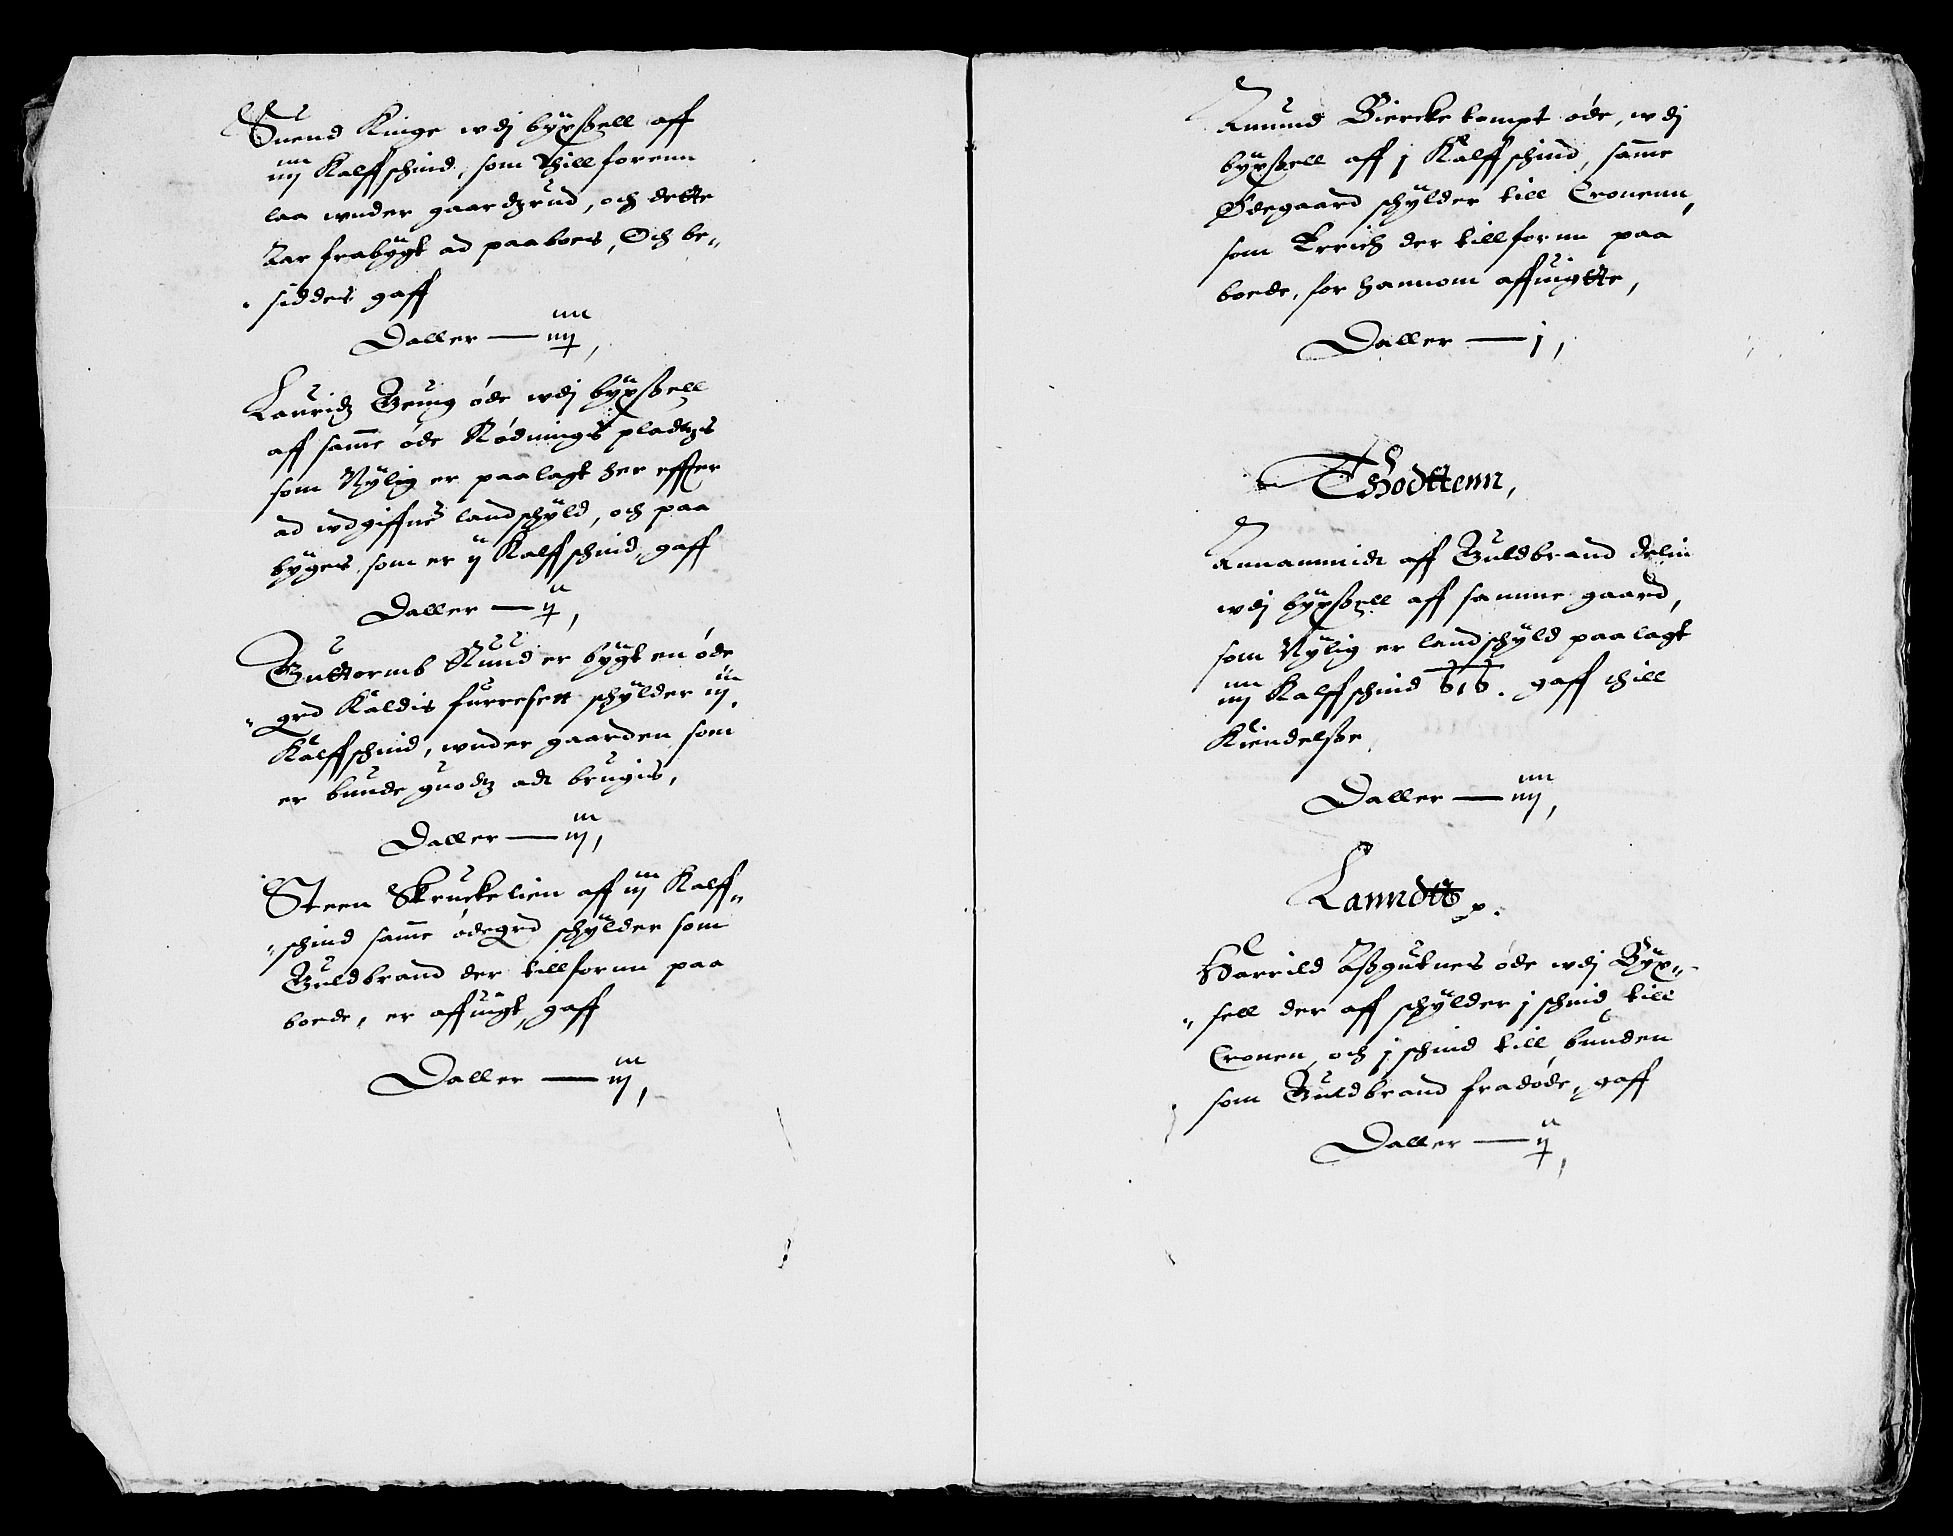 Suend Kinge wdj byxßell aff
iiij Kalffschind, som thillforenn
laa wnder gaardzrud, och dette
Aar frabygt ad paaboes, Och be„
siddes gaff
Daller — iiij,
Lauridz øde wdj byxßell
aff samme øde Rødnings pladtzs
som Nylig er paalagt her effter
ad wdgiffue landschyld, och paa
byges, som er ij Kalffschind, gaff
Daller — ij,
Guttormb Ruud er bygt en øde
grd Kaldis furresett schylder iij
Kalffschind, wnder gaarden som
er bunde guodtz adt brugis,
Daller — iij,
Steen Skruckelien aff iij Kalff„
„schind samme ødegrd schylder som
Guldbrand der tillfornn paa
boede, er affuigt, gaff
Daller — iij,
Amund Biercke tompt øde, wdj
byxßell aff j Kalffschind, samme
Ødegaard schylder till Cronenn,
som Errich der tillfornn paa
boede, for hannom affuigtte,
Daller — j,
Thodttenn,
aff Guldbrand delin
wdj byxßell aff samme gaard,
som Nylig er landschyld paalagt
iiij Kalffschind gaff thill
Kiendelße
Daller — iiij,
Lanndtt
Harrild Aßgutnes øde wdj Byx„
„sell der aff schylder j schind till
Cronen, och j schind till bunden
som Guldbrand fradøde, gaff
Daller — ij,